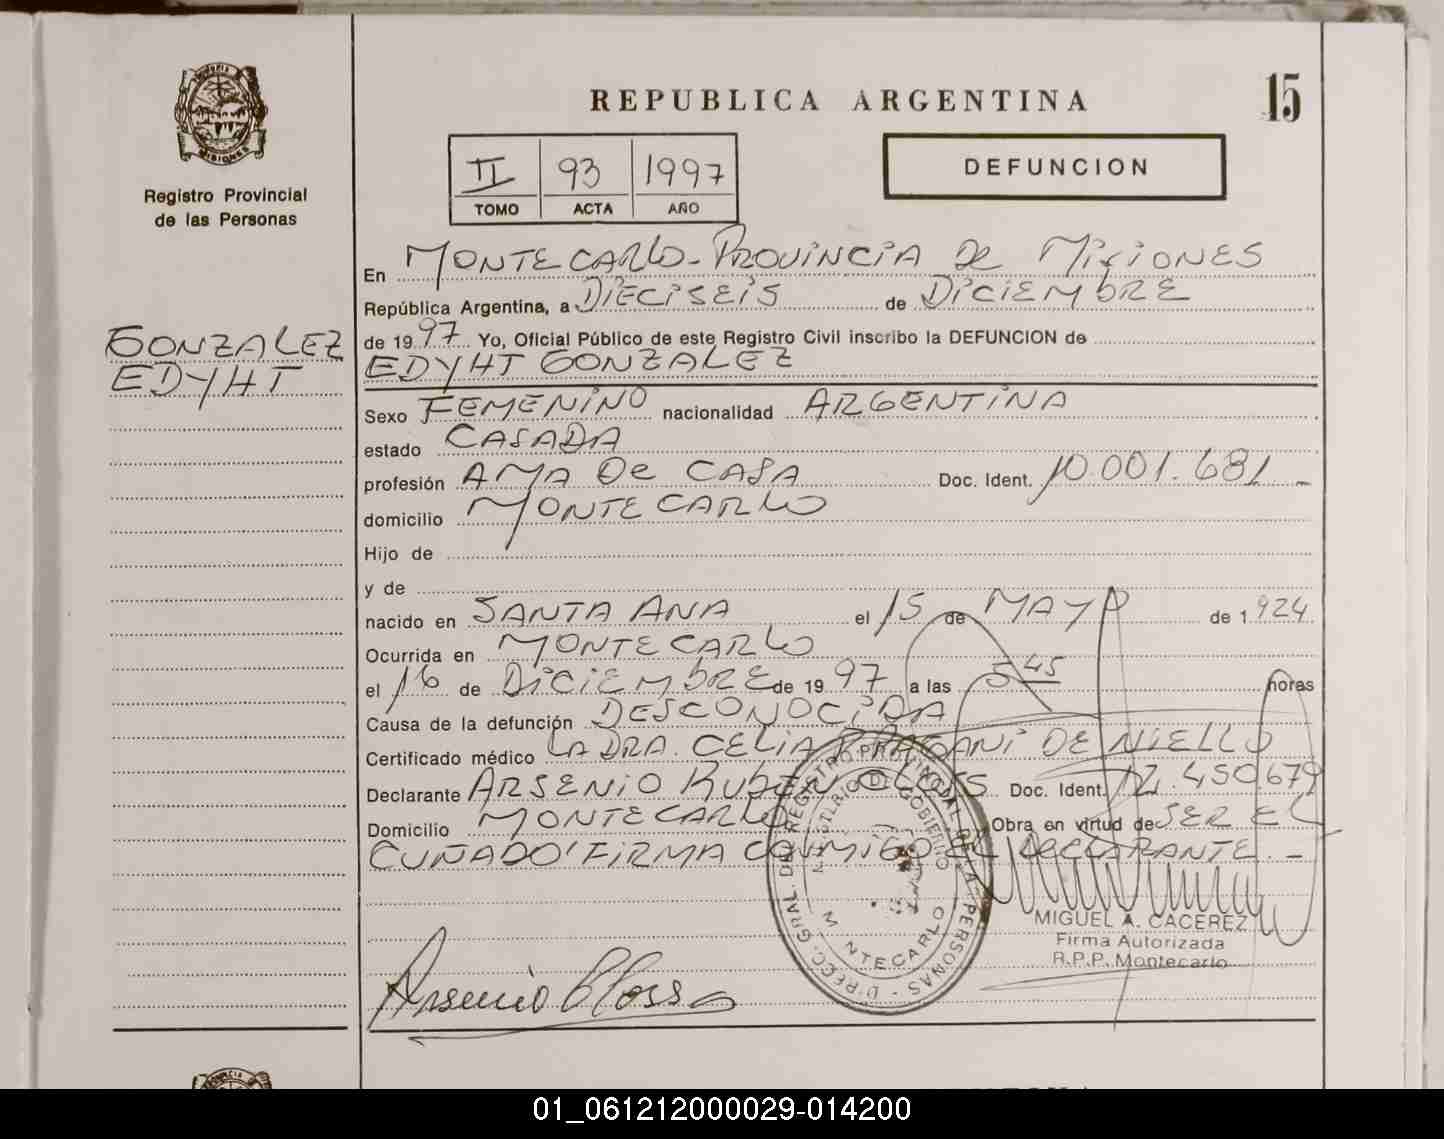 REPUBLICA ARGENTINA
15
MISIONES
Registro Provincial
de las Personas
II 93 1997
TOMO ACTA AÑO
DEFUNCION
GONZALEZ
EDYHT
En MONTECARLO - PROVINCIA DE MISIONES
República Argentina, a DIECISEIS de DICIEMBRE
de 1997 Yo, Oficial Público de este Registro Civil inscribo la DEFUNCION de
EDYHT GONZALEZ
Sexo FEMENINO nacionalidad ARGENTINA
estado CASADA
profesión AMA DE CASA Doc. Ident. 10.001.681 -
domicilio MONTECARLO
Hijo de
y de
nacido en SANTA ANA el 15 de MAYO de 1924
Ocurrida en MONTECARLO
el 16 de DICIEMBRE de 1997 a las 5 45 horas
Causa de la defunción DESCONOCIDA
Certificado médico LA DRA. CELIA DE NIELLO
Declarante ARSENIO RUBEN Doc. Ident. 12.450.679
Domicilio MONTECARLO Obra en virtud de SER EL
CUÑADO, FIRMA CONMIGO EL DECLARANTE. -
DIRECC. GRAL. DEL REGISTRO PROVINCIAL DE LAS PERSONAS
MINISTERIO DE GOBIERNO
MONTECARLO
MIGUEL A. CACEREZ
Firma Autorizada
R.P.P. Montecarlo
Arsenio
01_061212000029-014200